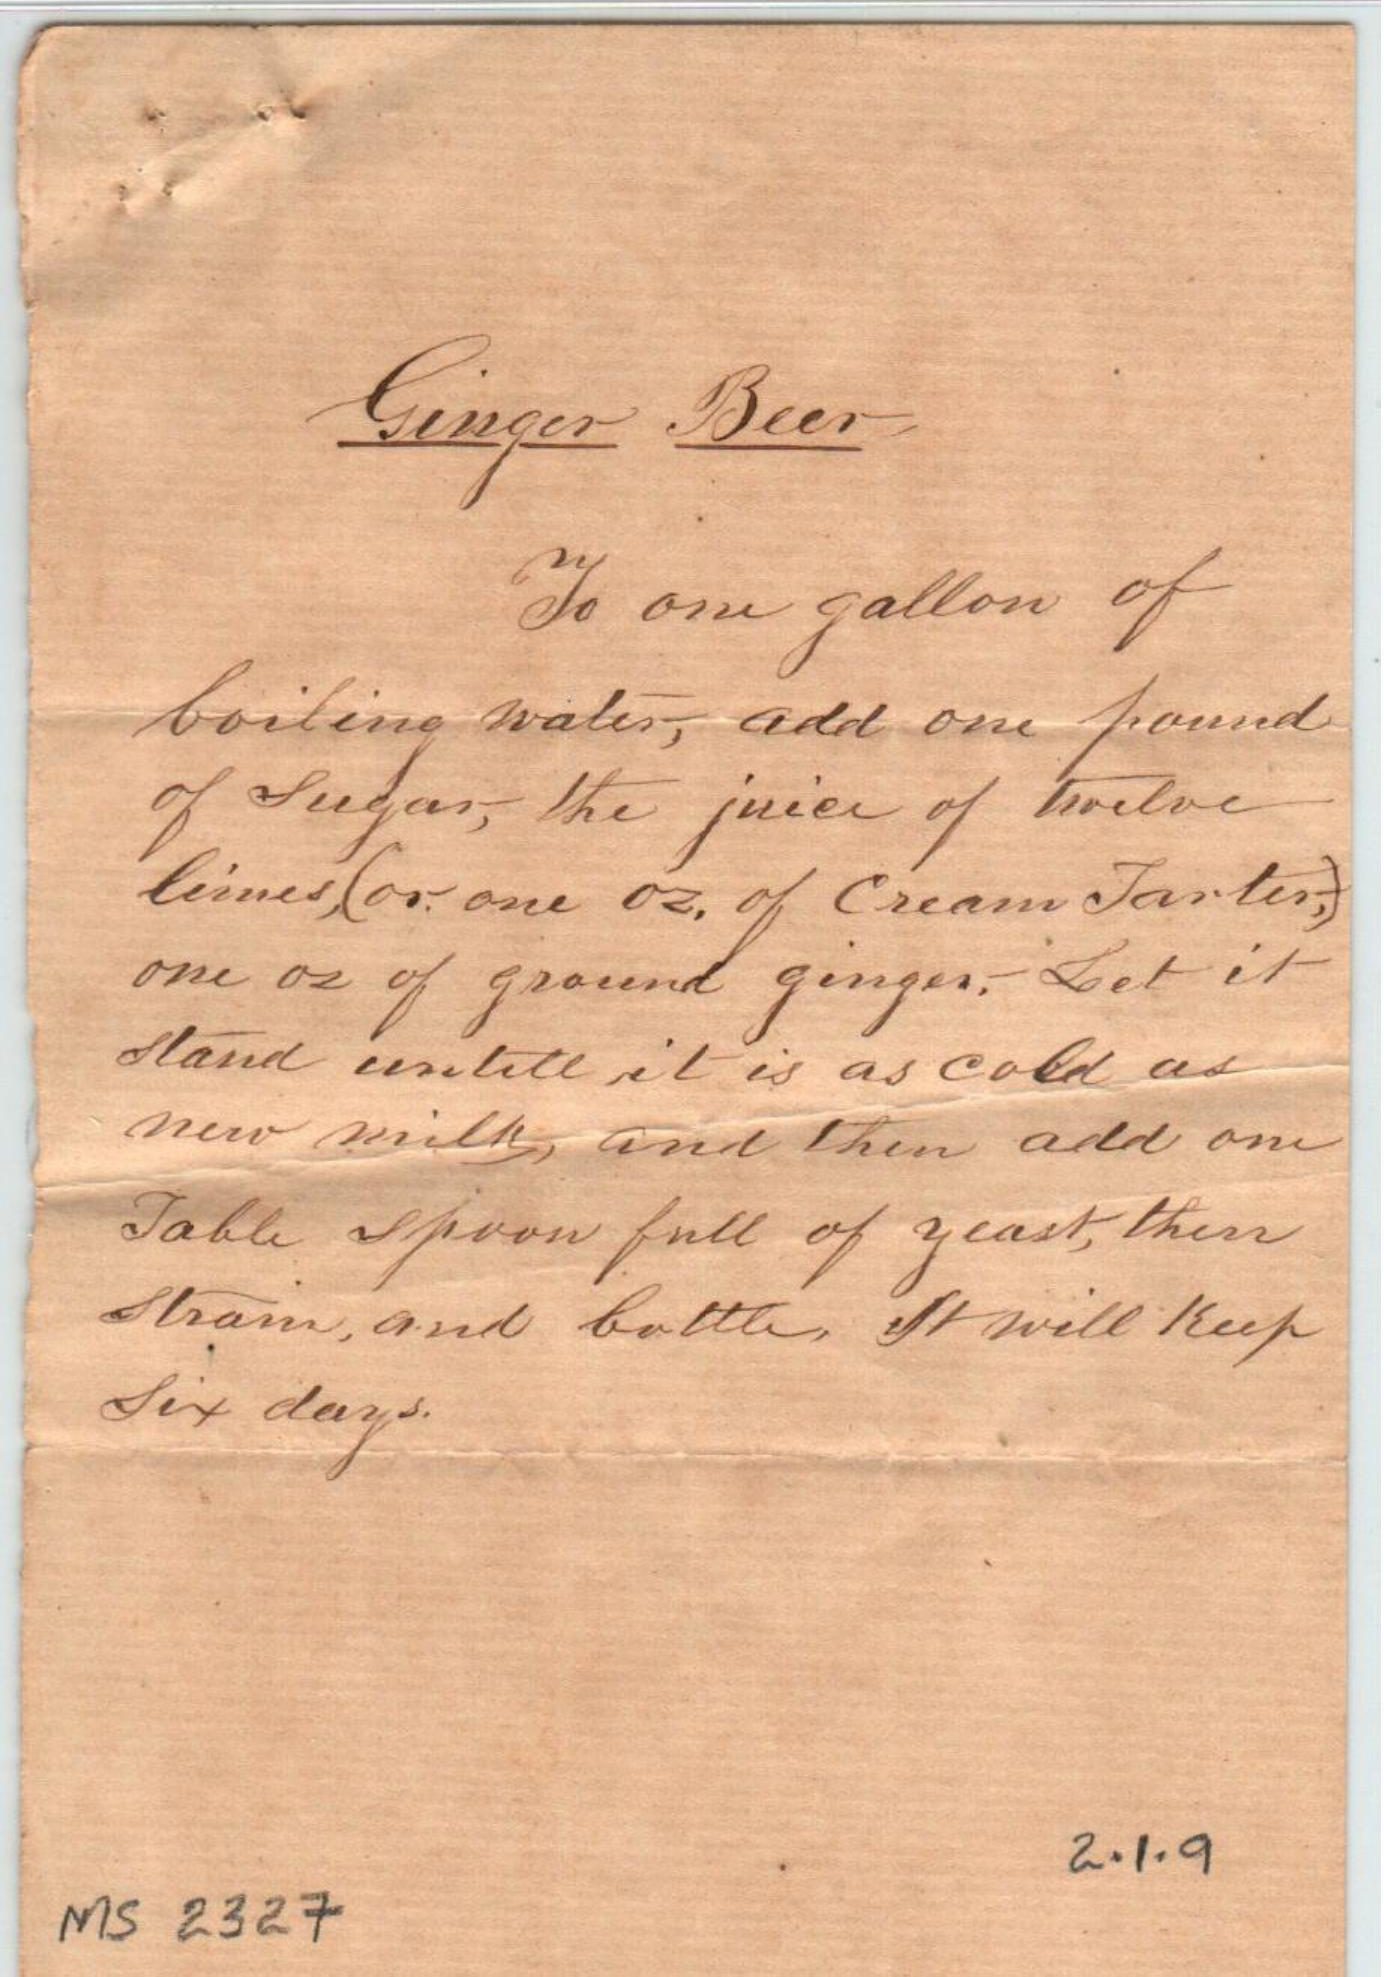 Ginger Beer
To one gallon of
boiling water, add one pound
of Sugar, the juice of twelve
limes, (or one oz. of Cream Tarter,)
one oz of ground ginger. Let it
stand untill it is as cold as
new milk, and then add one
Table spoon full of yeast, then
strain, and bottle. It will Keep
Six days.
2.1.9
MS 2327